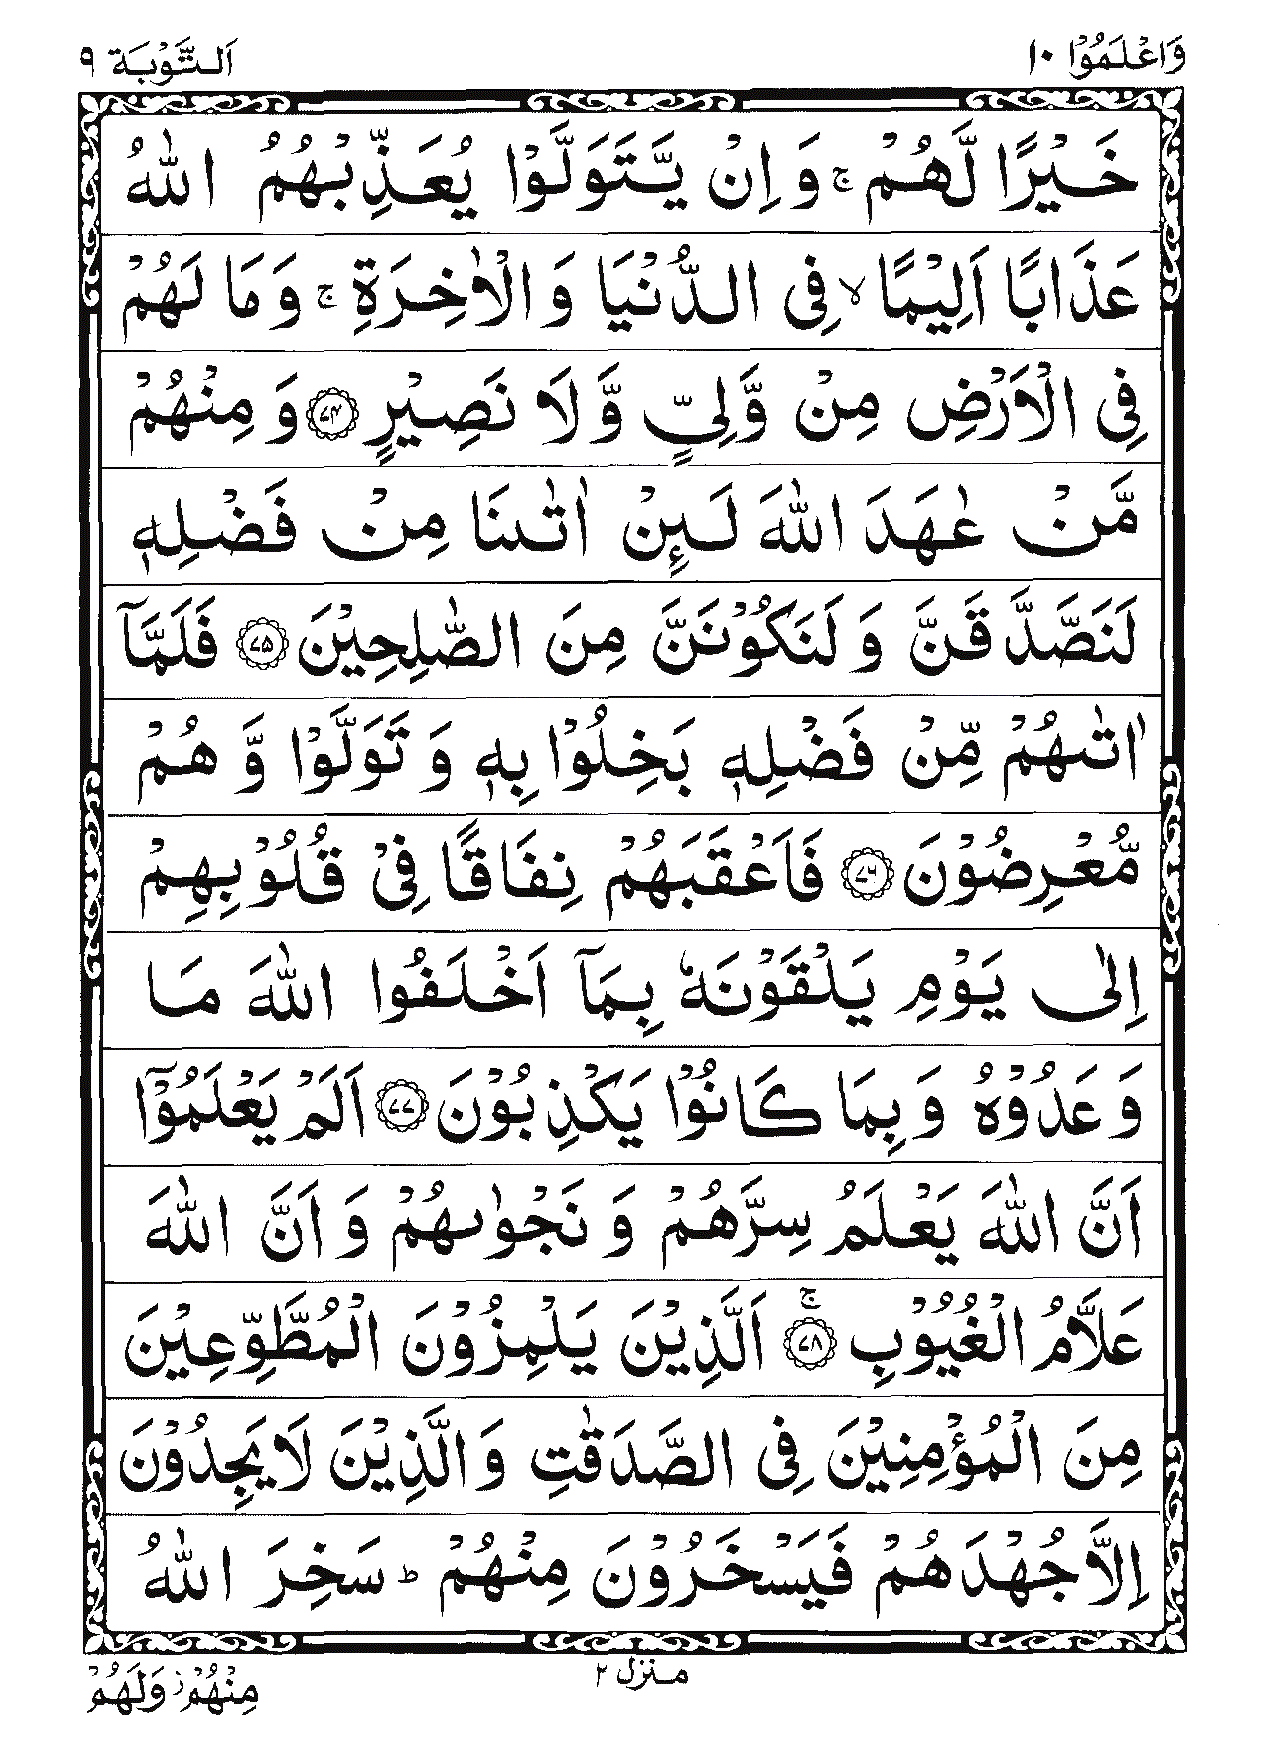 وَاعْلَمُوْا ١٠ اَلتَّوْبَة ٩
خَيْرًا لَّهُمْ ۚ وَ اِنْ يَّتَوَلَّوْا يُعَذِّبْهُمُ اللّٰهُ
عَذَابًا اَلِيْمًا ۙ فِى الدُّنْيَا وَ الْاٰخِرَةِ ۚ وَ مَا لَهُمْ
فِى الْاَرْضِ مِنْ وَّلِىٍّ وَّ لَا نَصِيْرٍ ﴿۷۴﴾ وَ مِنْهُمْ
مَّنْ عٰهَدَ اللّٰهَ لَىِٕنْ اٰتٰىنَا مِنْ فَضْلِهٖ
لَنَصَّدَّقَنَّ وَ لَنَكُوْنَنَّ مِنَ الصّٰلِحِيْنَ ﴿۷۵﴾ فَلَمَّاۤ
اٰتٰىهُمْ مِّنْ فَضْلِهٖ بَخِلُوْا بِهٖ وَ تَوَلَّوْا وَّ هُمْ
مُّعْرِضُوْنَ ﴿۷۶﴾ فَاَعْقَبَهُمْ نِفَاقًا فِىْ قُلُوْبِهِمْ
اِلٰى يَوْمِ يَلْقَوْنَهٗ بِمَاۤ اَخْلَفُوا اللّٰهَ مَا
وَعَدُوْهُ وَ بِمَا كَانُوْا يَكْذِبُوْنَ ﴿۷۷﴾ اَلَمْ يَعْلَمُوْۤا
اَنَّ اللّٰهَ يَعْلَمُ سِرَّهُمْ وَ نَجْوٰىهُمْ وَ اَنَّ اللّٰهَ
عَلَّامُ الْغُيُوْبِ ۚ﴿۷۸﴾ اَلَّذِيْنَ يَلْمِزُوْنَ الْمُطَّوِّعِيْنَ
مِنَ الْمُؤْمِنِيْنَ فِى الصَّدَقٰتِ وَالَّذِيْنَ لَا يَجِدُوْنَ
اِلَّا جُهْدَهُمْ فَيَسْخَرُوْنَ مِنْهُمْ ؕ سَخِرَ اللّٰهُ
منزل ٢
مِنْهُمْ ؗ وَلَهُمْ